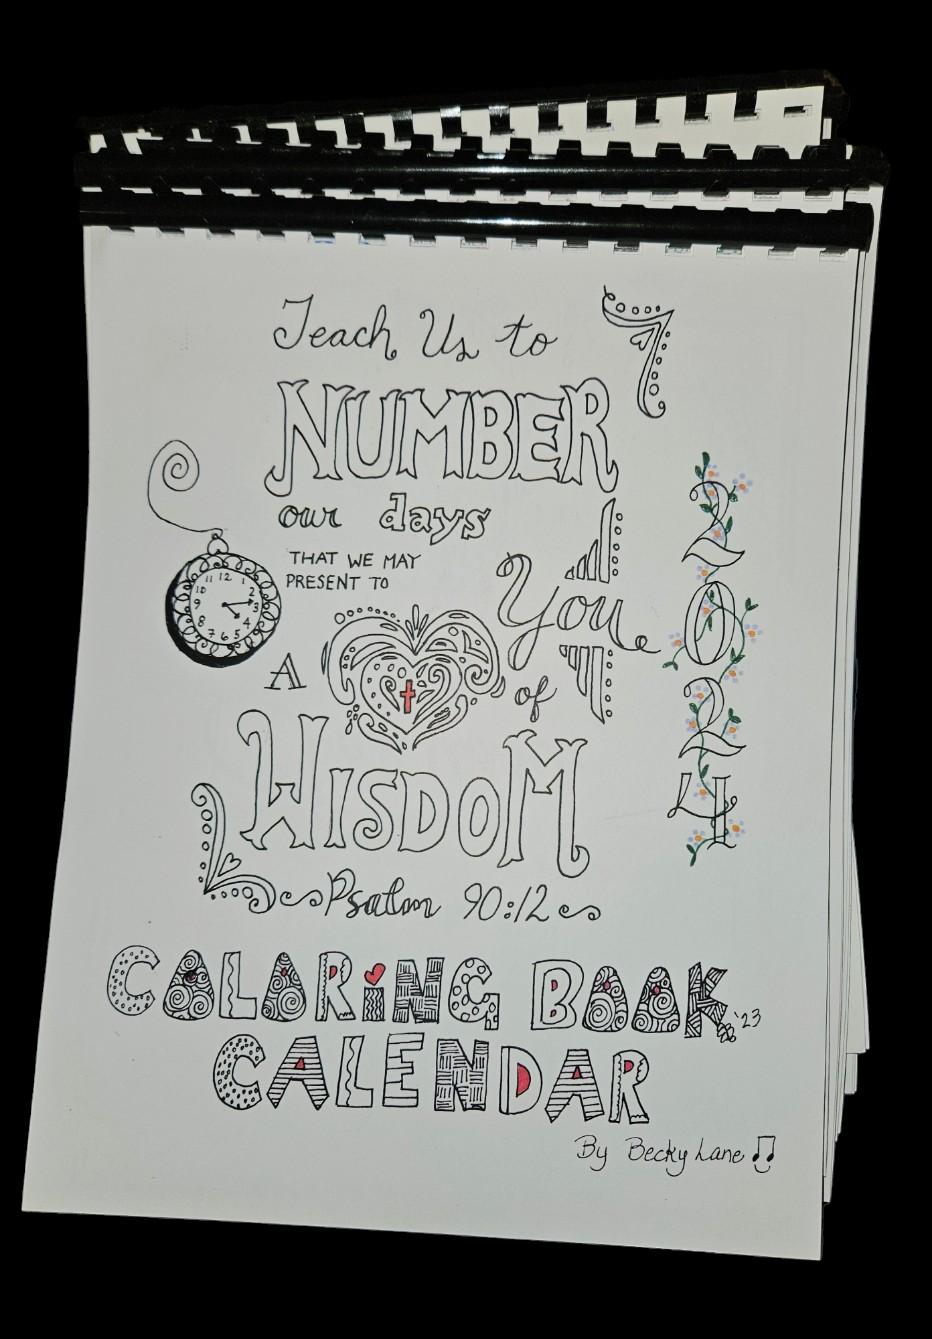 Teach Us to
NUMBER
our days
THAT WE MAY
PRESENT TO
You
A
of
WISDOM
Psalm 90:12
2024
11 12 1
10 2
9 3
8 4
7 6 5
COLORING BOOK
'23
CALENDAR
By Becky Lane